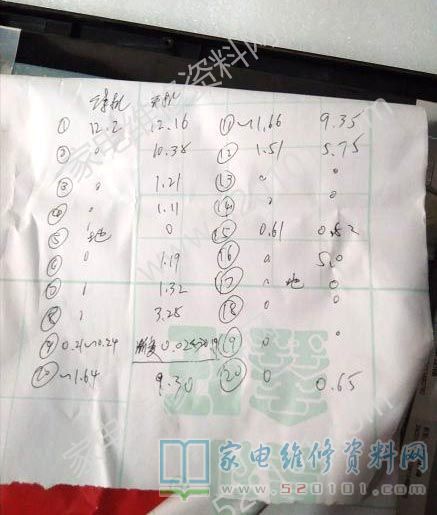 待机 开机
① 12.2 12.16 ⑪ ~1.66 9.35
② 0 10.38 ⑫ 1.51 5.75
③ 0 1.21 ⑬ 0 0
④ 0 1.11 ⑭ 0 0
⑤ 地 0 ⑮ 0.61 0.62
⑥ 0 1.19 ⑯ 0 5.0
⑦ 1.32 ⑰ 地 0
⑧ 3.28 ⑱ 0 0
⑨ 0.21~0.24 ⑲ 0 0
⑩ ~1.64 9.30 ⑳ 0 0.65
家电维修资料网
www.520101.com